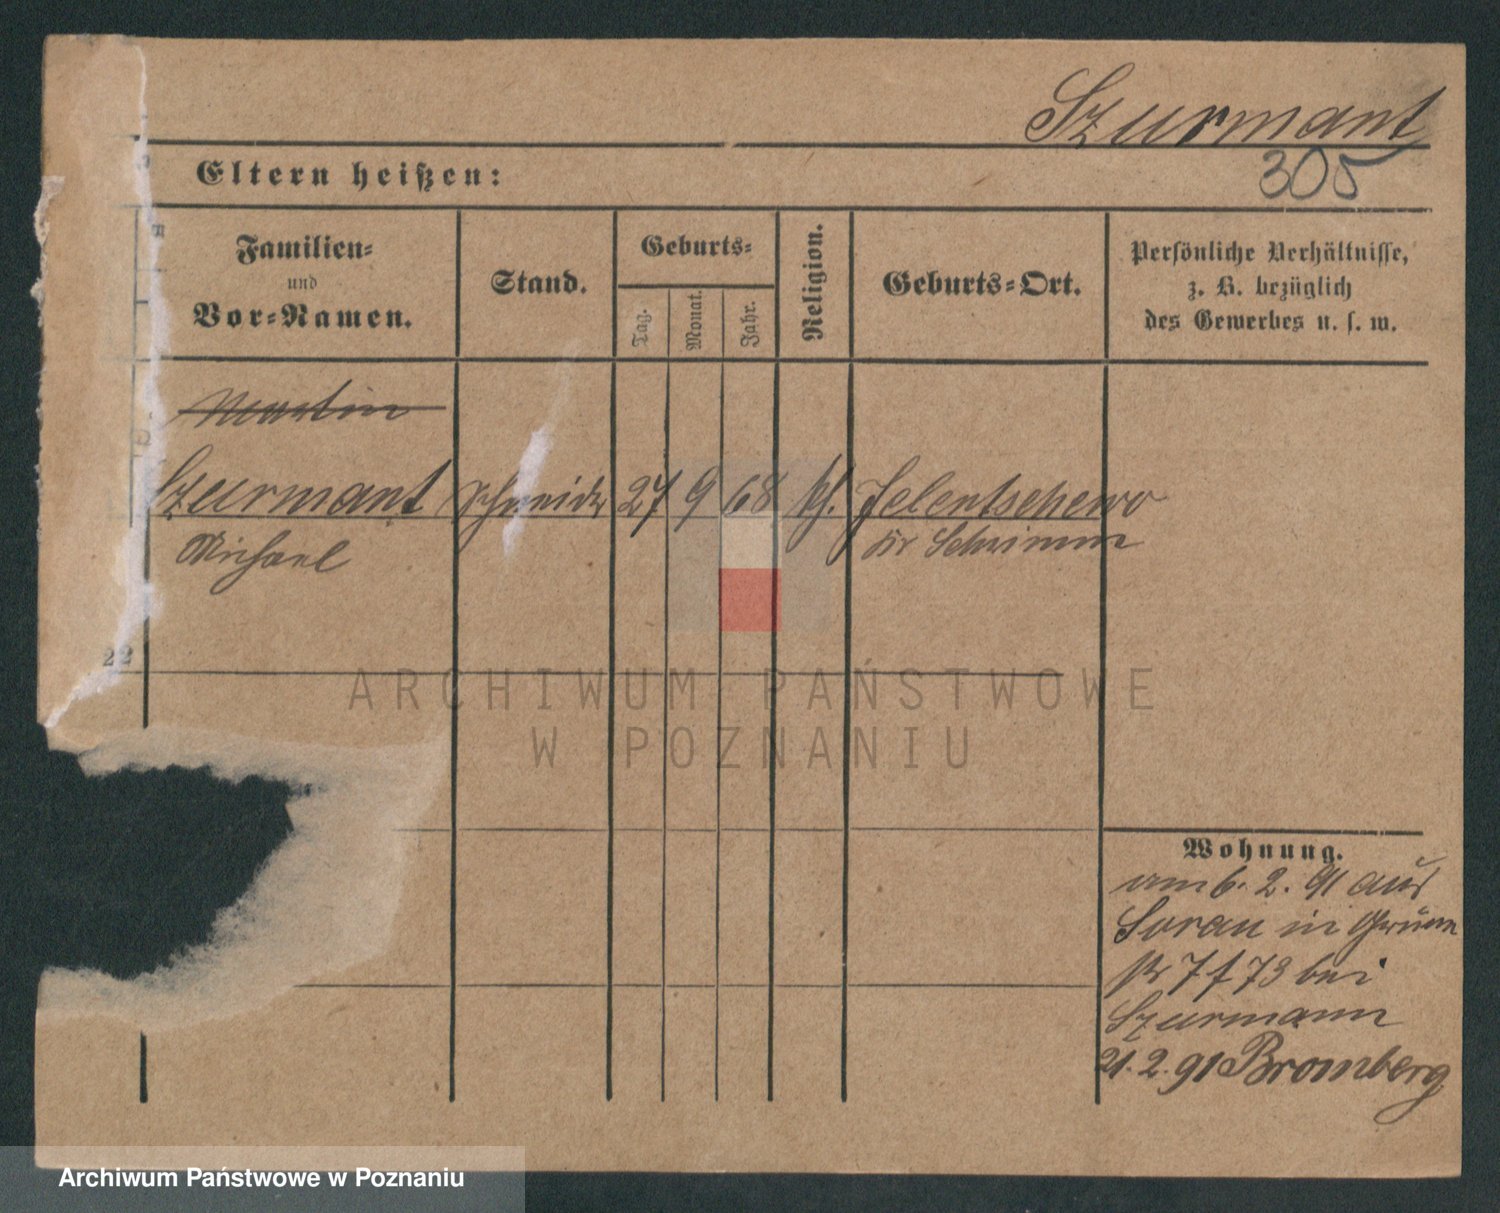 Szurmant
305
Eltern heißen:
Familien-
und
Vor-Namen.
Stand.
Geburts-
Tag.
Monat.
Jahr.
Religion.
Geburts-Ort.
Persönliche Verhältnisse,
z. B. bezüglich
des Gewerbes u. s. w.
Martin
Szurmant Schneider 27 9 68 kth. Jelentschewo
Michael Kr Schrimm
22
Wohnung.
am 6. 2. 91 aus
Sorau in
7 73 bei
Szurmann
21. 2. 91 Bromberg
ARCHIWUM PAŃSTWOWE
W POZNANIU
Archiwum Państwowe w Poznaniu